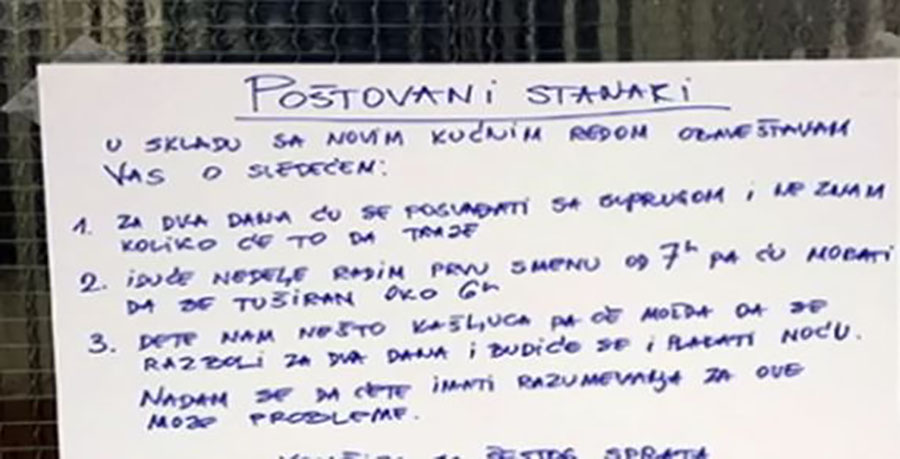 POŠTOVANI STANARI
U SKLADU SA NOVIM KUĆNIM REDOM OBAVEŠTAVAM
VAS O SLEDEĆEM:
1. ZA DVA DANA ĆU SE POSVAĐATI SA SUPRUGOM I NE ZNAM
KOLIKO ĆE TO DA TRAJE
2. IDUĆE NEDELJE RADIM PRVU SMENU OD 7h PA ĆU MORATI
DA SE TUŠIRAM OKO 6h
3. DETE NAM NEŠTO KAŠLJUCA PA ĆE MOŽDA DA SE
RAZBOLI ZA DVA DANA I BUDIĆE SE I PLAKATI NOĆU.
NADAM SE DA ĆETE IMATI RAZUMEVANJA ZA OVE
MOJE PROBLEME.
KOMŠIJA SA ŠESTOG SPRATA